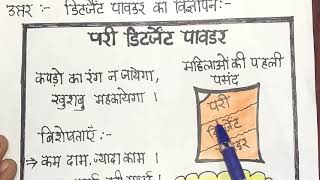 उत्तर :- डिटर्जेंट पावडर का विज्ञापन:-
परी डिटर्जेंट पावडर
कपड़ो का रंग न जायेगा,
खुशबु महकायेगा ।
महिलाओं की पहली
पसंद
परी
डिटर्जेंट
पावडर
विशेषताएँ:-
→ कम दाम, ज्यादा काम ।